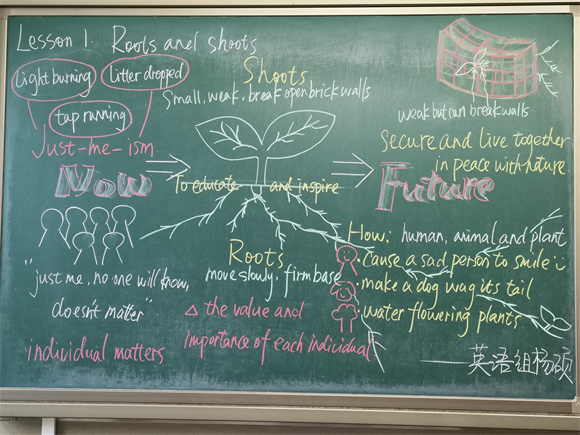 Lesson 1. Roots and shoots
Light burning
Litter dropped
tap running
Just-me-ism
Shoots
Small, weak, break open brick walls
weak but can break walls
Secure and live together
in peace with nature
Now
To educate and inspire
Future
"just me, no one will know,
doesn't matter"
individual matters
Roots
move slowly, firm base
△ the value and
importance of each individual
How: human, animal and plant
cause a sad person to smile
make a dog wag its tail
water flowering plants
——英语组杨硕